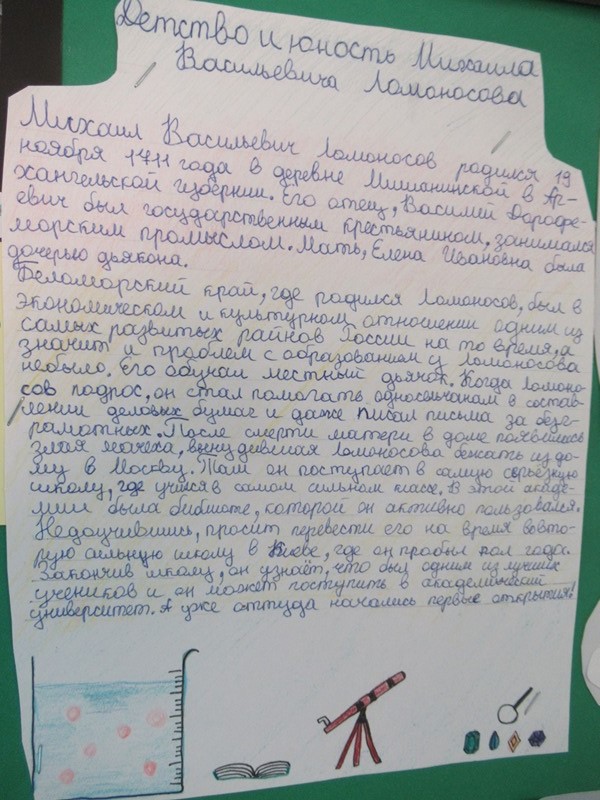 Детство и юность Михаила
Васильевича Ломоносова
Михаил Васильевич Ломоносов родился 19
ноября 1711 года в деревне Мишанинской в Ар-
хангельской губернии. Его отец, Василий Дорофе-
евич был государственным крестьянином, занимался
морским промыслом. Мать, Елена Ивановна была
дочерью дьякона.
Беломорский край, где родился Ломоносов, был в
экономическом и культурном отношении одним из
самых развитых районов России на то время, а
значит и проблем с образованием у Ломоносова
небыло. Его обучал местный дьячок. Когда Ломоно-
сов подрос, он стал помогать односельчанам в состав-
лении деловых бумаг и даже писал письма за безг-
рамотных. После смерти матери в доме появилась
злая мачеха, вынудившая Ломоносова бежать из до-
му в Москву. Там он поступает в самую серьезную
школу, где учился в самом сильном классе. В этой акаде-
мии была библиоте, которой он активно пользовался.
Недоучившись, просит перевести его на время вовто-
рую сильную школу в Киеве, где он пробыл пол года.
Закончив школу, он узнаёт, что был одним из лучших
учеников и он может поступить в академический
университет. А уже оттуда начались первые открытия!